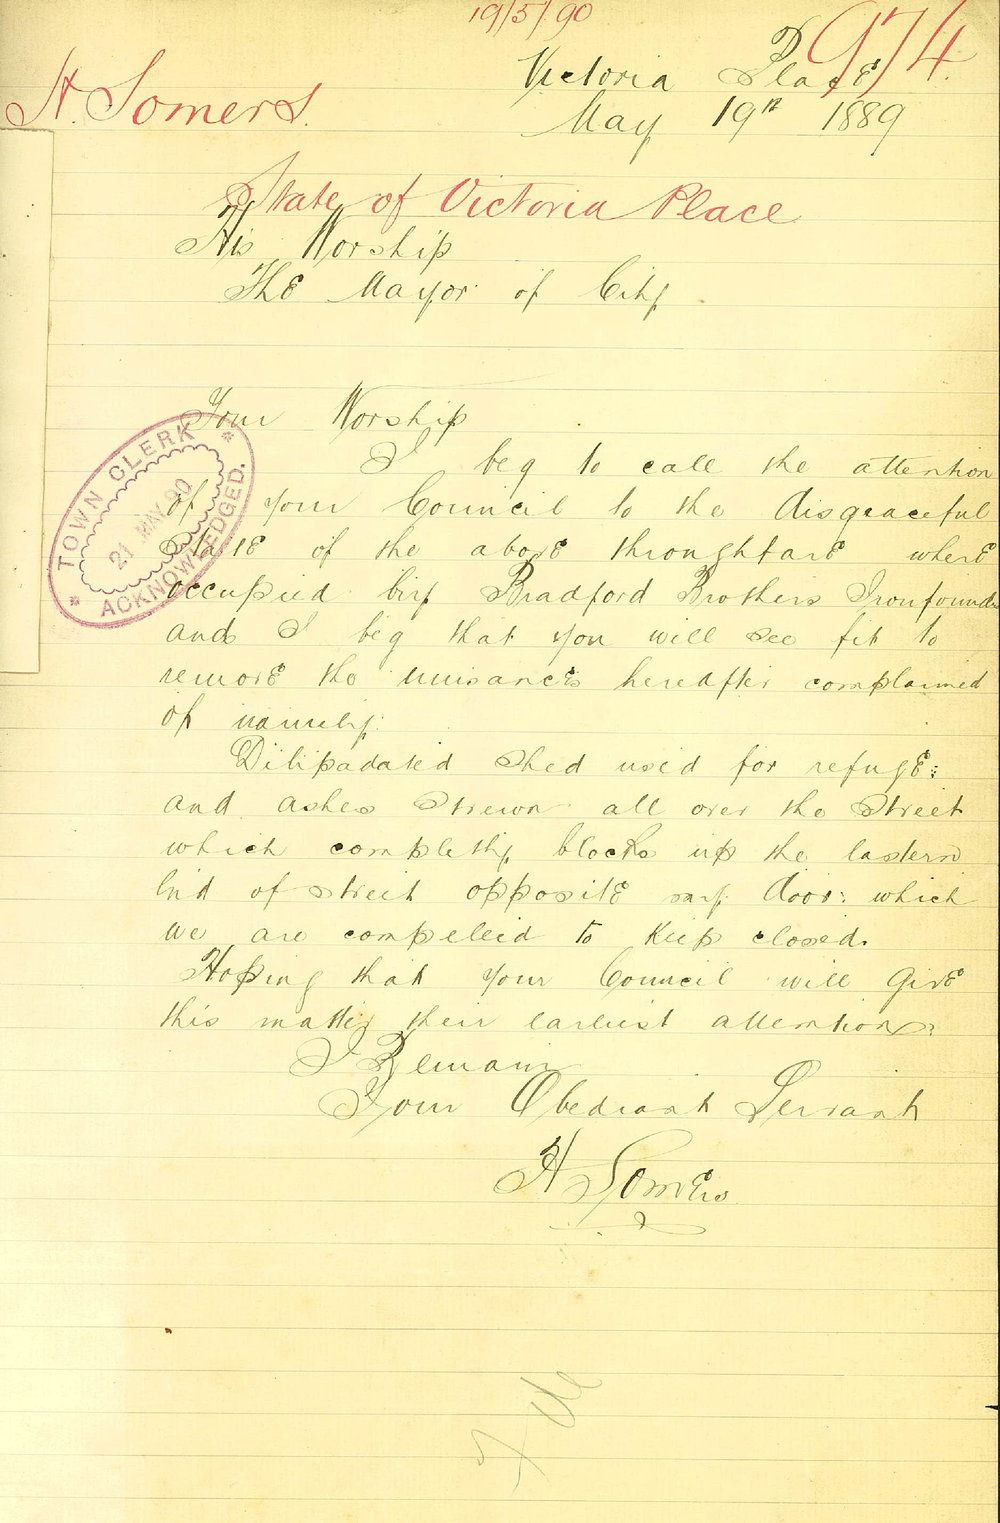 19/5/90
974.
H. Somers.
Victoria Place
May 19th 1889
State of Victoria Place
His Worship
The Mayor of City
Your Worship
I beg to call the attention
of your Council to the disgraceful
State of the above throughfare where
occupied by Bradford Brothers Ironfounds
and I beg that you will see fit to
remove the nuisances hereafter complained
of namely:
Dilipadated Shed used for refuge:
and ashes strewn all over the Street
which completly blocks up the eastern
End of street opposite my door: which
we are compelled to keep closed.
Hoping that your Council will give
this matter their earliest attention
I Remain
Your Obediant Servant
H Somers
TOWN CLERK
21 MAY 90
ACKNOWLEDGED.